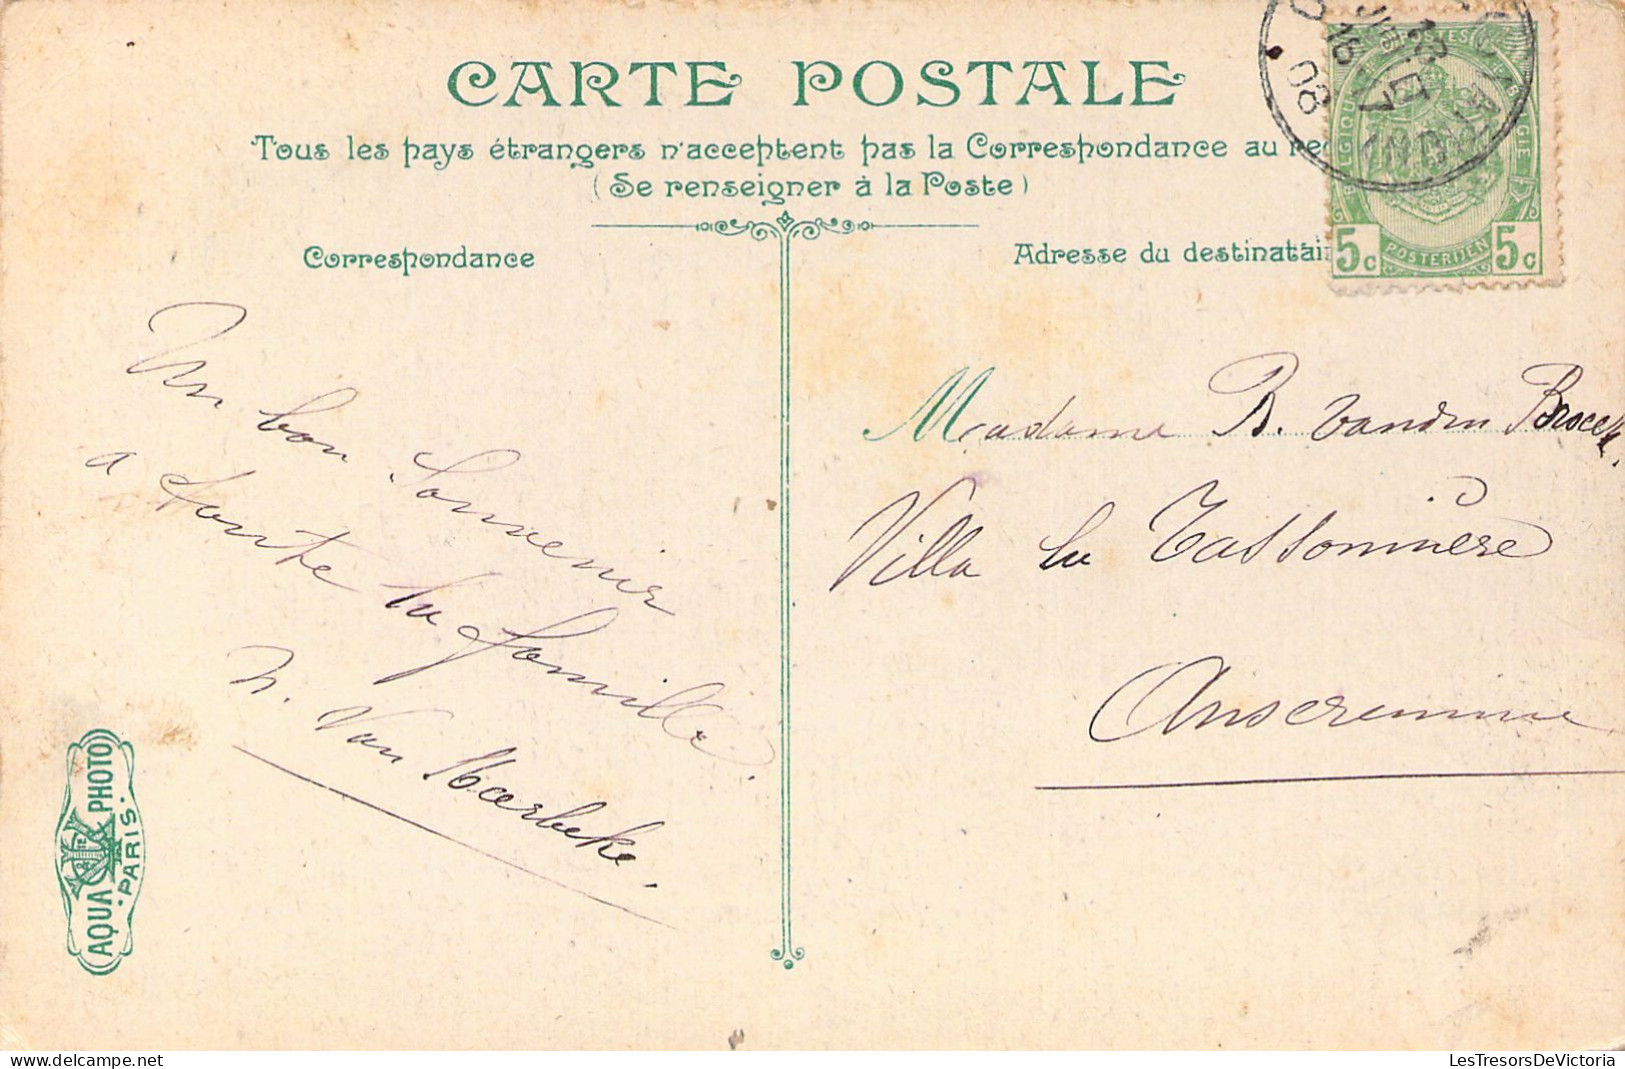 CARTE POSTALE
Tous les pays étrangers n'acceptent pas la Correspondance au rec
(Se renseigner à la Poste)
Correspondance
Un bon Souvenir
a toute la famille.
N. Van Heerbeke.
Adresse du destinatair
Madame B. Vanden Broeck.
Villa la Tassonnière
Anseremme
POSTES
BELGIQUE
BELGIE
5c POSTERIJEN 5c
16-17
08
AQUA PHOTO
PARIS
www.lestresorsdevictoria.com
LesTresorsDeVictoria